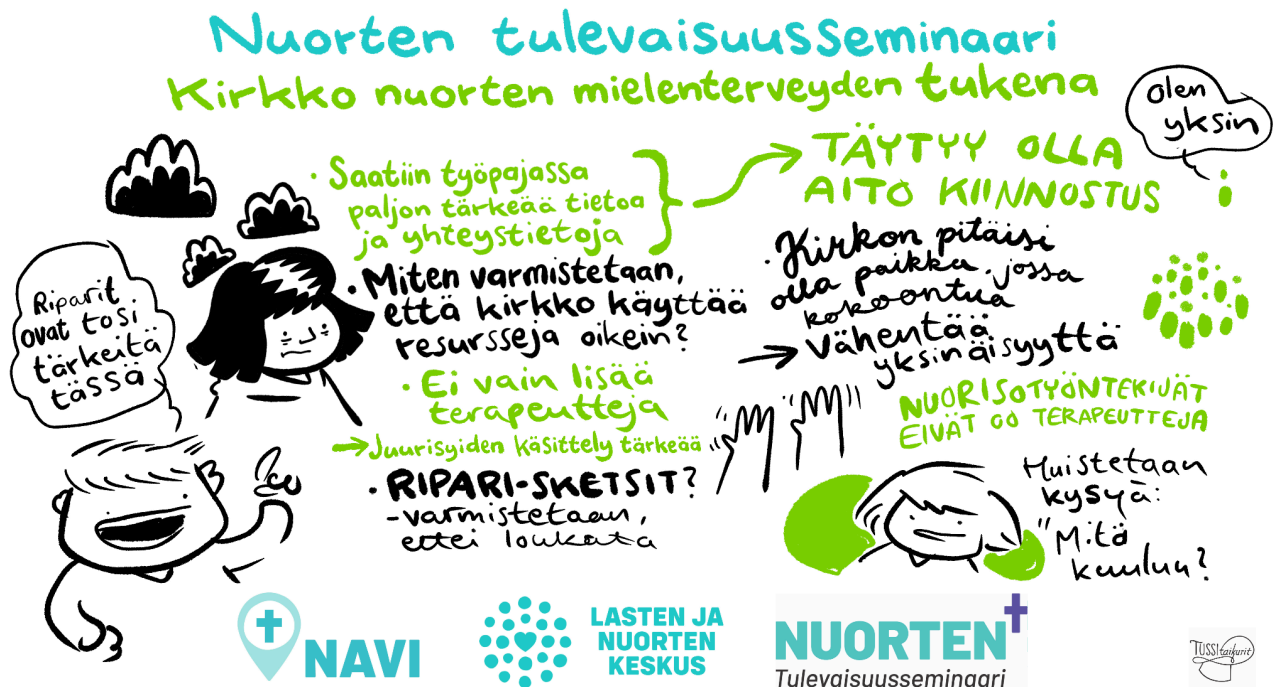 Nuorten tulevaisuusseminaari
Kirkko nuorten mielenterveyden tukena
olen
yksin
· Saatiin työpajassa
paljon tärkeää tietoa
ja yhteystietoja
→ TÄYTYY OLLA
AITO KIINNOSTUS
Riparit
ovat tosi
tärkeitä
tässä
· Miten varmistetaan,
että kirkko käyttää
resursseja oikein?
· Ei vain lisää
terapeutteja
→ Juurisyiden käsittely tärkeää
· RIPARI-SKETSIT?
- varmistetaan,
ettei loukata
· Kirkon pitäisi
olla paikka, jossa
kokoontua
→ vähentää
yksinäisyyttä
NUORISOTYÖNTEKIJÄT
EIVÄT OO TERAPEUTTEJA
Muistetaan
kysyä:
"Mitä
kuuluu?
NAVI
LASTEN JA
NUORTEN
KESKUS
NUORTEN
Tulevaisuusseminaari
TUSSItaikurit